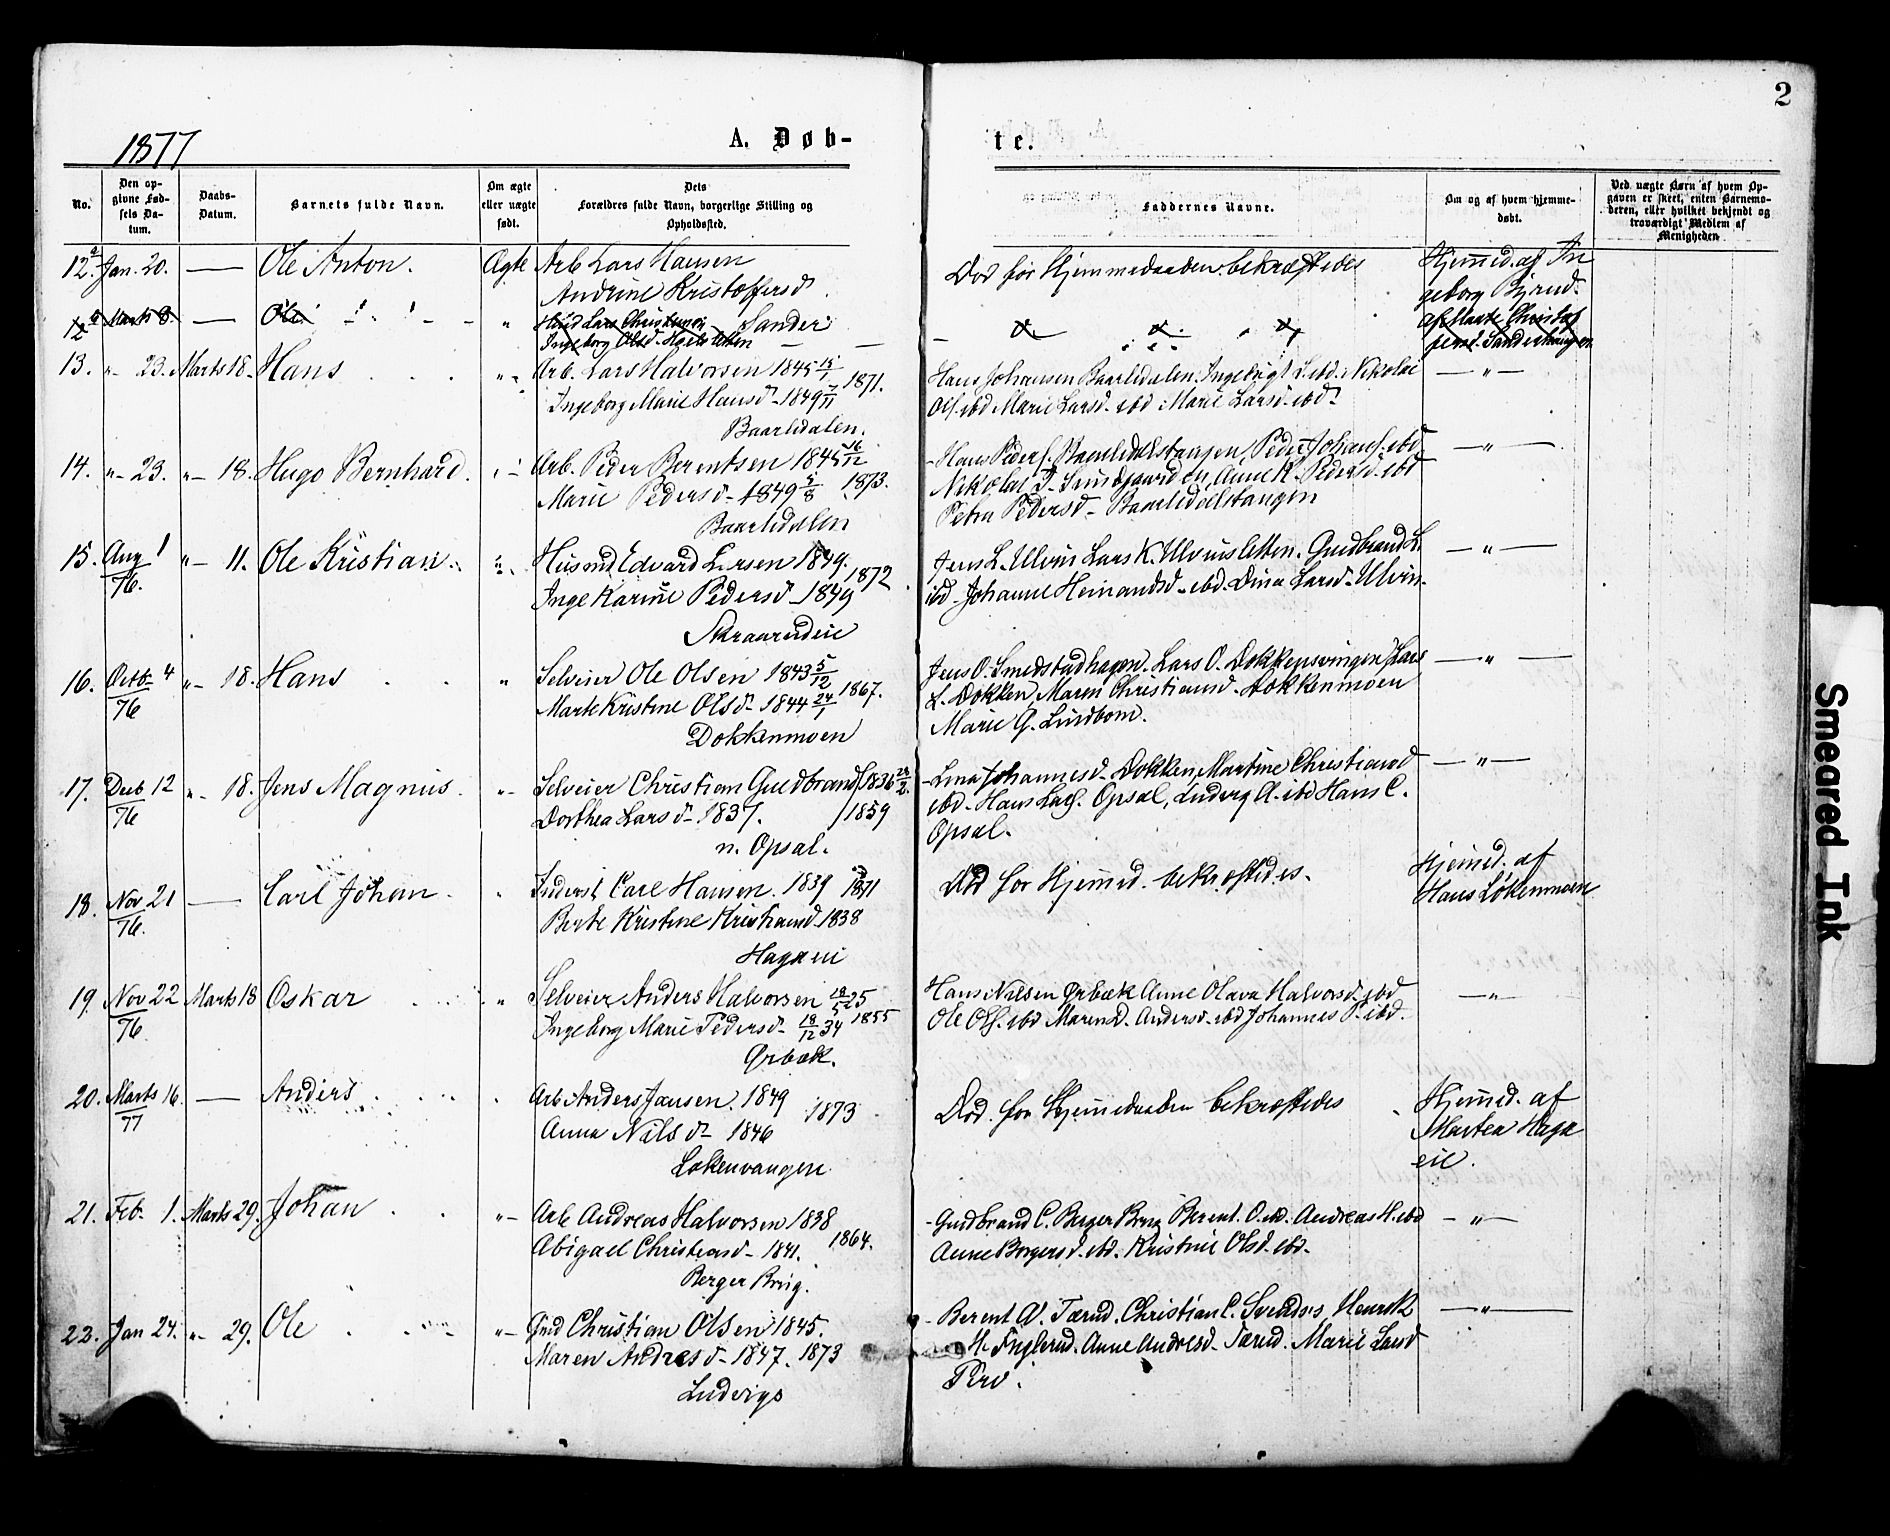 2
1877
A. Døb-
te.
No.
Den op-
givne Fød-
sels Da-
tum.
Daabs-
Datum.
Barnets fulde Navn.
Om ægte
eller uægte
født.
Dets
Forældres fulde Navn, borgerlige Stilling og
Opholdssted.
Faddernes Navne.
Om og af hvem hjemme-
døbt.
Ved uægte Børn af hvem Op-
gaven er skeet, enten Barnemo-
deren, eller hvilket bekjendt og
troværdigt Medlem af
Menigheden
12.a Jan. 20. — Ole Anton. Ægte Arb Lars Hansen
Andrine Kristoffersd.
Død før Hjemmedaaben bekræftedes
Hjemd. af In
geborg
12 Marts 8. — Ole " Lars Christensen Sander
Ingeborg Olsd.
af Marte Christof
fersd. Sanderhaugen
13. "- 23. Marts 18. Hans " Arb. Lars Halvorsen 1845 15/1
Ingeborg Marie Hansd. 1849 7/11 1871.
Baarlidalen.
Hans Johansen Baarlidalen. Ingebrigt L. ibd. Nikolai
Ols. ibd Marie Larsd. ibd Marie Larsd. ibd.
—"—
14. "- 23. "- 18. Hugo Bernhard. "- Arb. Peder Berentsen 1845 16/12
Marie Pedersd. 1849 5/8 1873.
Baarlidalen
Hans Peders. Baarlidalstangen, Peder Johans. ibd
Nikolai P. Smidgaarden, Anne K. Pedersd. ibd
Petra Pedersd. Baarlidalstangen
—"—
15. Aug 1/76. "- 11. Ole Kristian. " Husmd Edvard Larsen 1849.
Inge Karine Pedersd. 1849 1872
Jens L. Ulvin Lars K. Ulvinsletten. Gudbrand L.
ibd. Johanne Hemandsd. ibd. Dina Larsd. Ulvin.
—"—
16. Octb. 4/76 "- 18. Hans " Selveier Ole Olsen 1843 5/12
Marte Kristine Olsd. 1844 24/1 1867.
Dokkenmoen
Jens O. Smedstadhagen. Lars O. Dokkensvingen, Lars
L. Dokken, Maren Christiansd. Dokkenmoen
Marie G. Lindbom.
—"—
17. Decb 12/76 "- 18. Jens Magnus. "- Selveier Christian Guldbrands. 1836 28/2
Dorthea Larsd. 1837. 1859
n. Opsal.
Lina Johannesd. Dokken, Martine Christiansd
ibd. Hans Lars. Opsal, Ludvig A. ibd Hans C.
Opsal.
—"—
18. Nov 21/76. — Carl Johan. " Inderst Carl Hansen. 1839 1871
Berte Kristine Kristiansd. 1838
Hagaeie
Død for Hjemmed. bekræftedes.
Hjemmed. af
Hans Løkenmoen
19. Nov 22/76. Marts 18 Oskar "- Selveier Anders Halvorsen 18/5 25
Ingeborg Marie Pedersd. 18/12 34 1855
Ørbæk.
Hans Nilsen Ørbæk Anne Olava Halvorsd. ibd
Ole Ols. ibd Maren Andersd. ibd Johannes P. ibd.
—"—
20. Marts 16/77 — Anders . Arb Anders Jansen. 1849
Anna Nilsd. 1846 1873
Løkenvangen
Død. for Hjemmedaaben bekræftedes
Hjemmed. af
Martea Haga
eie.
21. Feb. 1. Marts 29. Johan "- Arb Andreas Halvorsen 1838
Abigael Christensd. 1841. 1864.
Berger Brug.
Gudbrand C. Berger Brug Berent. O. ibd. Andreas H. ibd
Anne Borgersd. ibd. Kristine Olsd. ibd.
—"—
22. Jan 24. "- 29. Ole "- Gmd Christian Olsen 1845.
Maren Andresd. 1847. 1873
Ludvigs
Berent A. Tærud. Christian C. Svendsr, Henrik
H. Englerud. Anne Andresd. Tærud. Marie Larsd
—"—
Smeared Ink